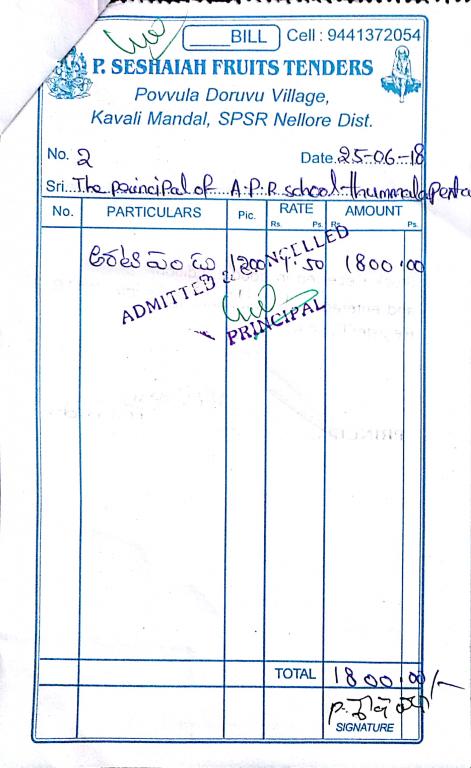 BILL Cell : 9441372054
P. SESHAIAH FRUITS TENDERS
Povvula Doruvu Village,
Kavali Mandal, SPSR Nellore Dist.
No. 2 Date. 25-06-18
Sri. The principal of A.P.R school thummalapenta
No. PARTICULARS Pic. RATE AMOUNT
Rs. Ps. Rs. Ps.
అరటి పండు 1200 1.50 1800.00
ADMITTED & CANCELLED
PRINCIPAL
TOTAL 1800.00/-
SIGNATURE